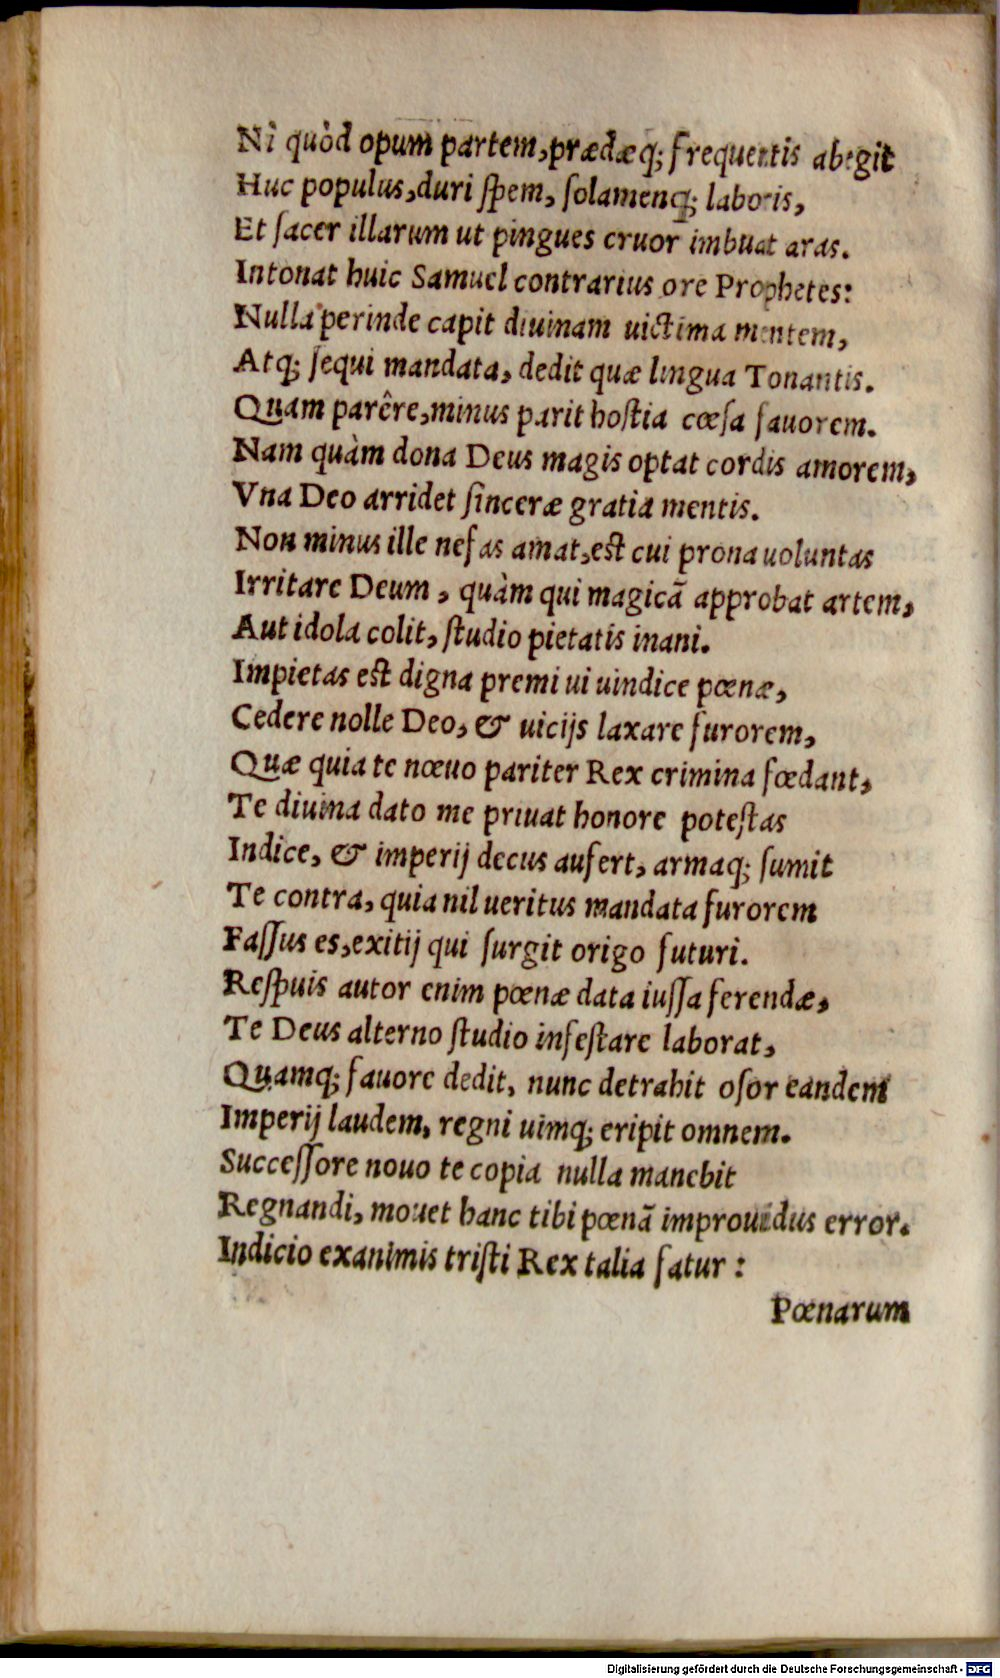 Ni quòd opum partem, prædæq; frequentis abegit
Huc populus, duri ſpem, ſolamenq; laboris,
Et ſacer illarum ut pingues cruor imbuat aras.
Intonat huic Samuel contrarius ore Prophetes:
Nulla perinde capit diuinam uictima mentem,
Atq; ſequi mandata, dedit quæ lingua Tonantis.
Quam parêre, minus parit hoſtia cœſa fauorem.
Nam quàm dona Deus magis optat cordis amorem,
Vna Deo arridet ſinceræ gratia mentis.
Non minus ille nefas amat, eſt cui prona uoluntas
Irritare Deum, quàm qui magicã approbat artem,
Aut idola colit, ſtudio pietatis inani.
Impietas eſt digna premi ui uindice pœnæ,
Cedere nolle Deo, & uicijs laxare furorem,
Quæ quia te nœuo pariter Rex crimina fœdant,
Te diuina dato me priuat honore poteſtas
Indice, & imperij decus aufert, armaq; ſumit
Te contra, quia nil ueritus mandata furorem
Faſſus es, exitij qui ſurgit origo futuri.
Reſpuis autor enim pœnæ data iuſſa ferendæ,
Te Deus alterno ſtudio infeſtare laborat,
Quamq; fauore dedit, nunc detrahit oſor eandem
Imperij laudem, regni uimq; eripit omnem.
Succeſſore nouo te copia nulla manebit
Regnandi, mouet hanc tibi pœnã improuidus error.
Indicio exanimis triſti Rex talia fatur:
Pœnarum
Digitalisierung gefördert durch die Deutsche Forschungsgemeinschaft - DFG